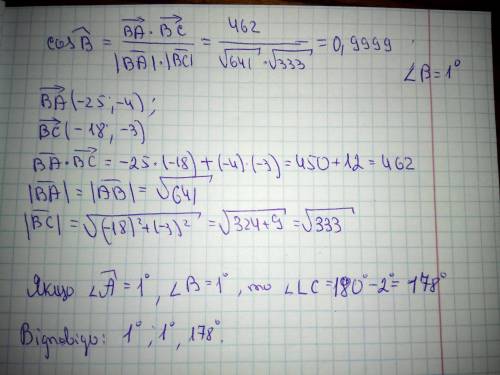 cos B̂ = (B͞A͞→ · BC→) / (|BA→|·|BC|) = 462 / (√641 · √333) = 0,9999
∠B=1°
BA→(-25; -4);
BC→(-18; -3)
BA→·BC→ = -25·(-18)+(-4)·(-3)=450+12=462
|BA|=|AB→|=√641
|BC→|=√((-18)²+(-3)²)=√(324+9)=√333
Якщо ∠Â=1°, ∠B=1°, то ∠LC=180°-2°=178°
Відповідь: 1°, 1°, 178°.